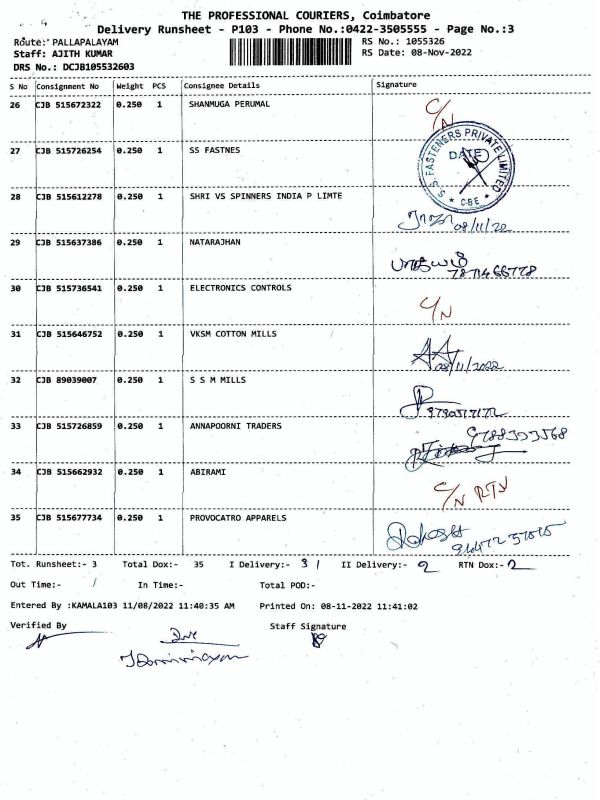 THE PROFESSIONAL COURIERS, Coimbatore
Delivery Runsheet - P103 - Phone No.:0422-3505555 - Page No.:3
Route: PALLAPALAYAM
RS No.: 1055326
Staff: AJITH KUMAR
RS Date: 08-Nov-2022
DRS No.: DCJB105532603
S No Consignment No Weight PCS Consignee Details Signature
26 CJB 515672322 0.250 1 SHANMUGA PERUMAL C/N
27 CJB 515726254 0.250 1 SS FASTNES
S.S. FASTENERS PRIVATE LIMITED
DATE
* CBE *
28 CJB 515612278 0.250 1 SHRI VS SPINNERS INDIA P LIMTE
ராஜா 08/11/22
29 CJB 515637386 0.250 1 NATARAJHAN
30 CJB 515736541 0.250 1 ELECTRONICS CONTROLS C/N
31 CJB 515646752 0.250 1 VKSM COTTON MILLS
08/11/2022
32 CJB 89039007 0.250 1 S S M MILLS
33 CJB 515726859 0.250 1 ANNAPOORNI TRADERS
34 CJB 515662932 0.250 1 ABIRAMI C/N RTN
35 CJB 515677734 0.250 1 PROVOCATRO APPARELS
Tot. Runsheet:- 3 Total Dox:- 35 I Delivery:- 31 II Delivery:- 2 RTN Dox:- 2
Out Time:- / In Time:- Total POD:-
Entered By :KAMALA103 11/08/2022 11:40:35 AM Printed On: 08-11-2022 11:41:02
Verified By Staff Signature